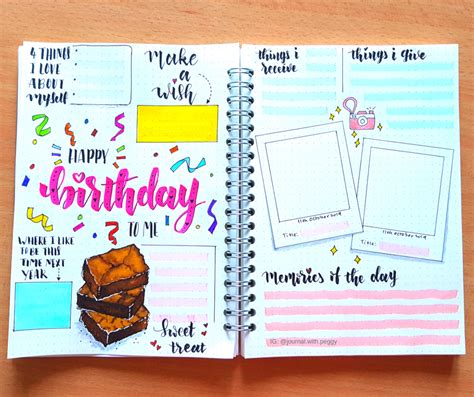 4 THINGS
I LOVE
ABOUT
MYSELF
Make
a
wish
HAPPY
birthday
TO ME
WHERE I LIKE
TO BE THIS
TIME NEXT
YEAR
Sweet
treat
things i
receive
things i give
11th october 2019
Title:
11th october 2019
Title:
Memories of the day
IG: @journal.with.peggy